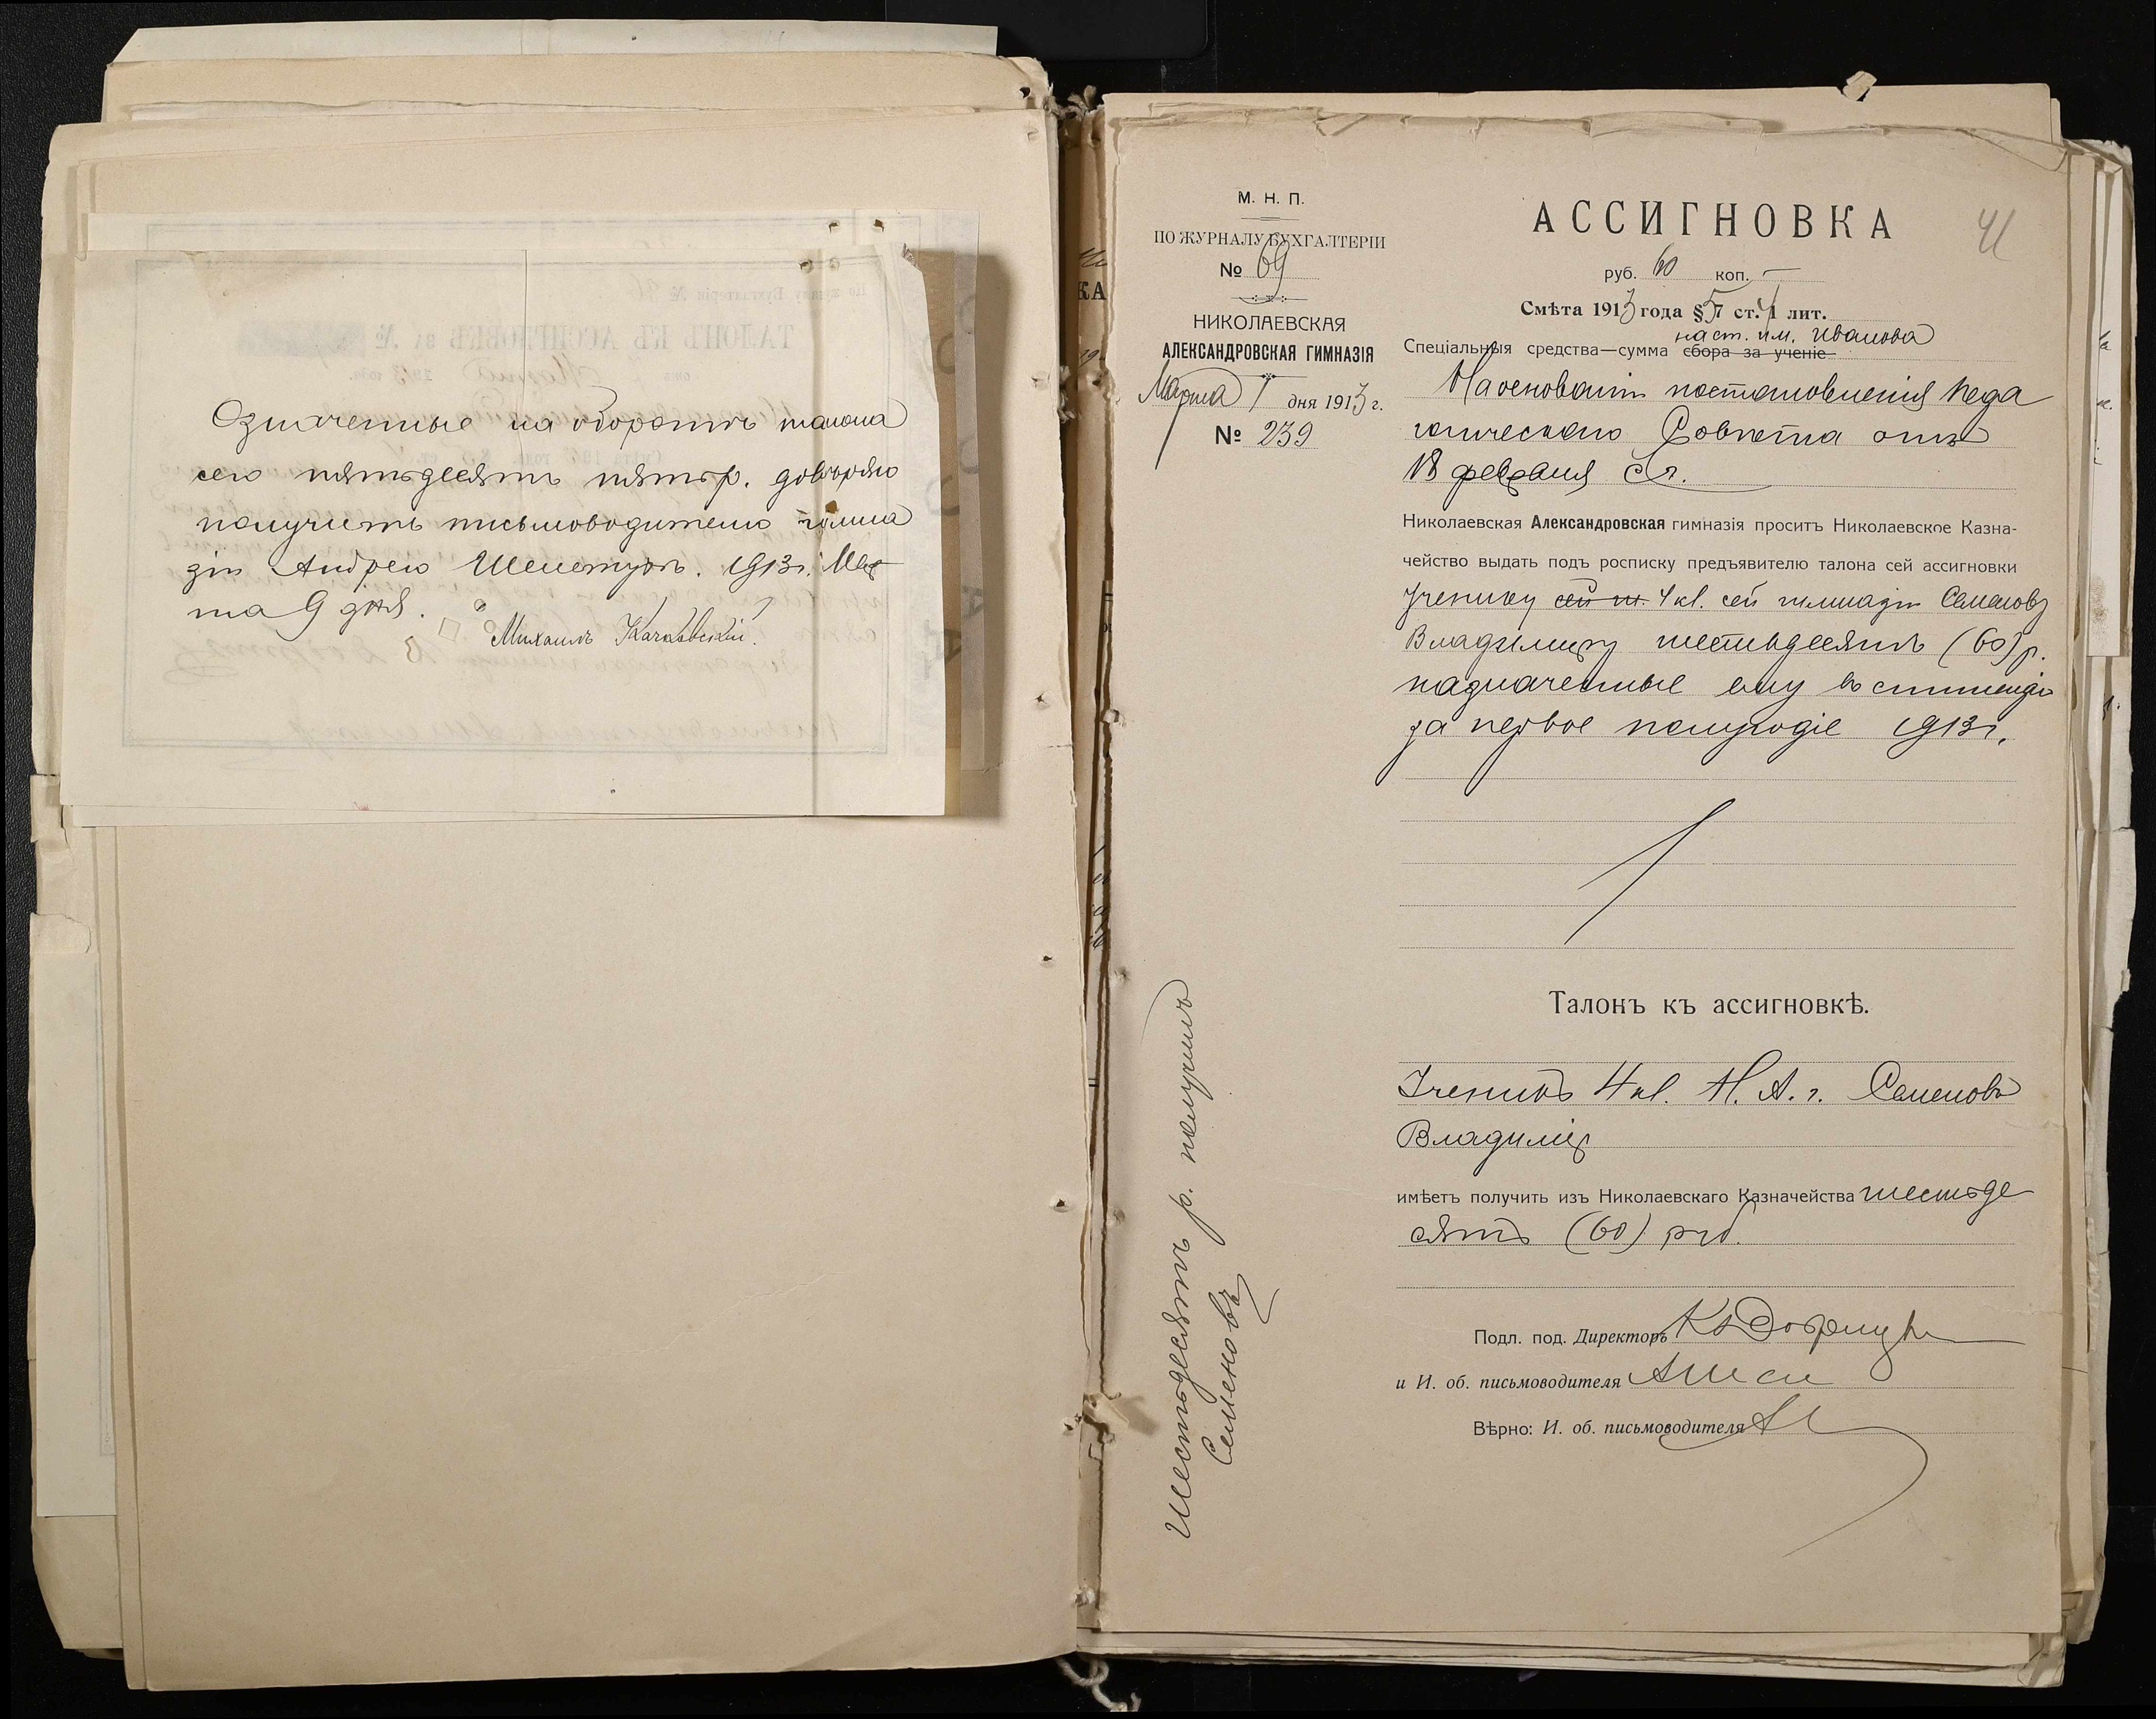 Означенные на оборотѣ талона
сего пятьдесятъ пять р. довѣряю
получить письмоводителю гимна
зіи Андрею Шелестуку. 1913 г. Мар
та 9 дня.
Михаилъ
М. Н. П.
ПО ЖУРНАЛУ БУХГАЛТЕРІИ
№ 69
НИКОЛАЕВСКАЯ
АЛЕКСАНДРОВСКАЯ ГИМНАЗІЯ
Марта 1 дня 1913 г.
№ 239
41
АССИГНОВКА
руб. 60 коп. —
Смѣта 1913 года § 5 ст. 1 лит.
им. Иванова
Спеціальныя средства—сумма сбора за ученіе
На основаніи постановленія Педа
гогическаго Совѣта отъ
18 февраля с.г.
Николаевская Александровская гимназія проситъ Николаевское Казна-
чейство выдать подъ росписку предъявителю талона сей ассигновки
Ученику сей ги. 4 кл. сей гимназіи Семенову
Владиміру шестьдесятъ (60) р.
назначенные ему въ стипендію
за первое полугодіе 1913 г.
Талонъ къ ассигновкѣ.
Ученикъ 4 кл. Н. А. г. Семеновъ
Владиміръ
имѣетъ получить изъ Николаевскаго Казначейства шестьде
сятъ (60) руб.
Подл. под. Директоръ
и И. об. письмоводителя
Вѣрно: И. об. письмоводителя
Шестьдесятъ р. получилъ
Семеновъ